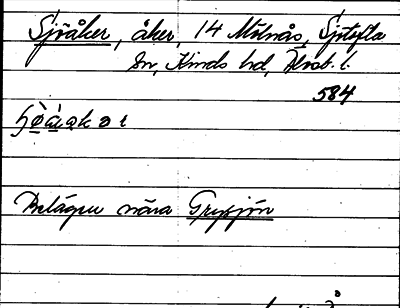 Sjöåker, åker, 14 Mölnås, Sjötofta
sn, Kinds hd, Älvsb. l.
584
Belägen nära Grysjön